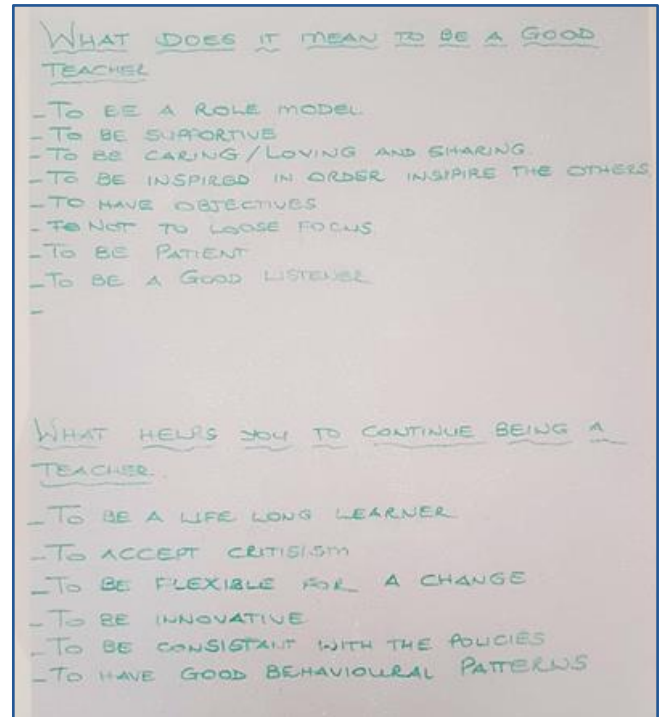 WHAT DOES IT MEAN TO BE A GOOD
TEACHER
- TO BE A ROLE MODEL.
- TO BE SUPPORTIVE
- TO BE CARING/LOVING AND SHARING.
- TO BE INSPIRED IN ORDER INSIPIRE THE OTHERS.
- TO HAVE OBJECTIVES
- TO NOT TO LOOSE FOCUS.
- TO BE PATIENT
- TO BE A GOOD LISTENER
-
WHAT HELPS YOU TO CONTINUE BEING A
TEACHER.
- TO BE A LIFE LONG LEARNER
- TO ACCEPT CRITISISM
- TO BE FLEXIBLE FOR A CHANGE
- TO BE INNOVATIVE
- TO BE CONSISTANT WITH THE POLICIES
- TO HAVE GOOD BEHAVIOURAL PATTERNS